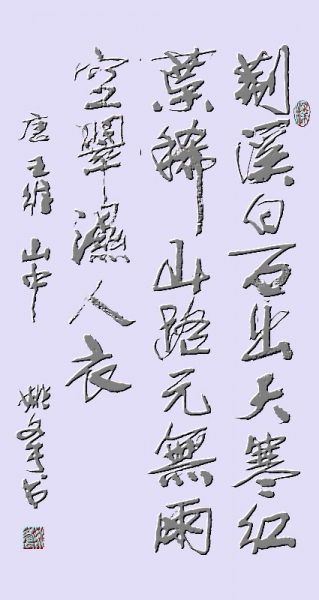 荆溪白石出天寒红
葉稀山路元無雨
空翠濕人衣
唐王維山中